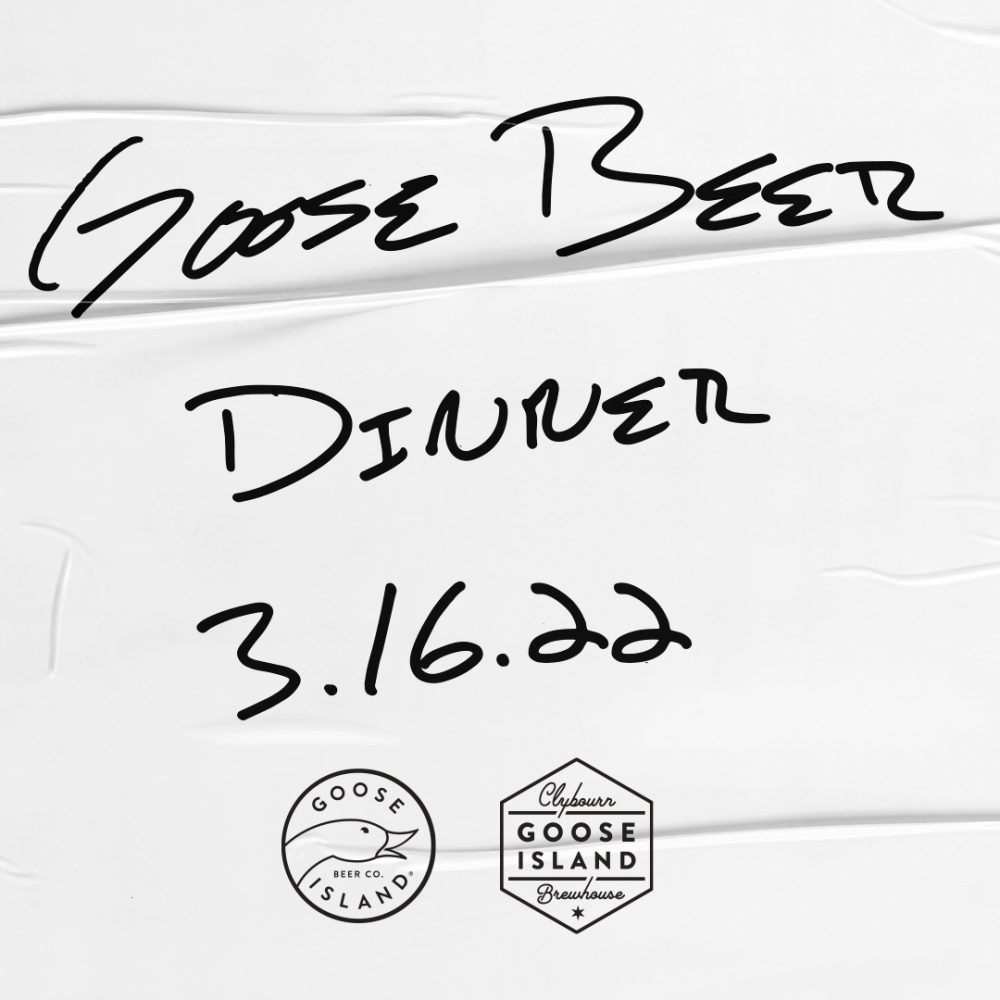 GOOSE BEER
DINNER
3.16.22
GOOSE
BEER CO.
ISLAND®
Clybourn
GOOSE
ISLAND
Brewhouse